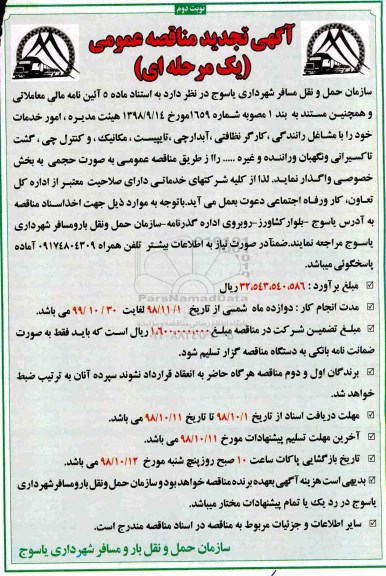 نوبت دوم
آگهی تجدید مناقصه عمومی
(یک مرحله ای)
سازمان حمل و نقل مسافر شهرداری یاسوج در نظر دارد به استناد ماده ۵ آئین نامه مالی معاملاتی
و همچنین مستند به بند ۱ مصوبه شماره ۱۶۵۹مورخ ۱۳۹۸/۹/۱۴ هیئت مدیره ، امور خدمات
خود را با مشاغل رانندگی ،کارگر نظافتی ،آبدارچی ،تایپیست ، مکانیک ، و کنترل چی ، گشت
تاکسیرانی ونگهبان وراننده و غیره ..... راا ز طریق مناقصه عمومی به صورت حجمی به بخش
خصوصی واگذار نماید. لذا از کلیه شرکتهای خدماتی دارای صلاحیت معتبر از اداره کل
تعاون، کار ورفاه اجتماعی دعوت بعمل می آید.باتوجه به موارد ذیل جهت اخذاسناد مناقصه
به آدرس یاسوج -بلوارکشاورز-روبروی اداره گذرنامه-سازمان حمل ونقل بارومسافر شهرداری
یاسوج مراجعه نمایند.ضمنآدر صورت نیاز به اطلاعات بیشتر تلفن همراه ۰۹۱۷۴۸۰۴۳۰۹ آماده
پاسخگوئی میباشد.
مبلغ برآورد : ۳۲،۵۴۳،۵۴۰،۵۸۶ ریال
مدت انجام کار : دوازده ماه شمسی از تاریخ ۹۸/۱۱/۱ لغایت ۹۹/۱۰/۳۰ می باشد.
مبلغ تضمین شرکت در مناقصه مبلغ ۱،۶۰۰،۰۰۰،۰۰۰ ریال است که باید فقط به صورت
ضمانت نامه بانکی به دستگاه مناقصه گزار تسلیم شود.
برندگان اول و دوم مناقصه هرگاه حاضر به انعقاد قرارداد نشوند سپرده آنان به ترتیب ضبط
خواهد شد.
مهلت دریافت اسناد از تاریخ ۹۸/۱۰/۱ تا تاریخ ۹۸/۱۰/۱۱ می باشد.
آخرین مهلت تسلیم پیشنهادات مورخ ۹۸/۱۰/۱۱ می باشد.
تاریخ بازگشایی پاکات ساعت ۱۰ صبح روزپنج شنبه مورخ ۹۸/۱۰/۱۲ می باشد.
بدیهی است هزینه آگهی بعهده برنده مناقصه خواهد بود و سازمان حمل ونقل بارومسافرشهرداری
یاسوج در رد یک یا تمام پیشنهادات مختار میباشد.
سایر اطلاعات و جزئیات مربوط به مناقصه در اسناد مناقصه مندرج است.
سازمان حمل و نقل بار و مسافر شهرداری یاسوج